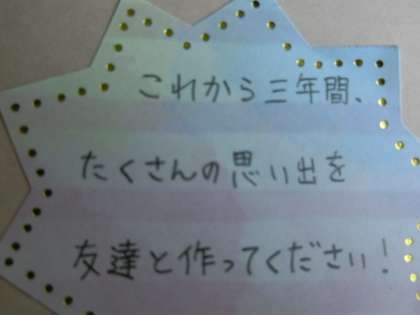 これから三年間、
たくさんの思い出を
友達と作ってください!